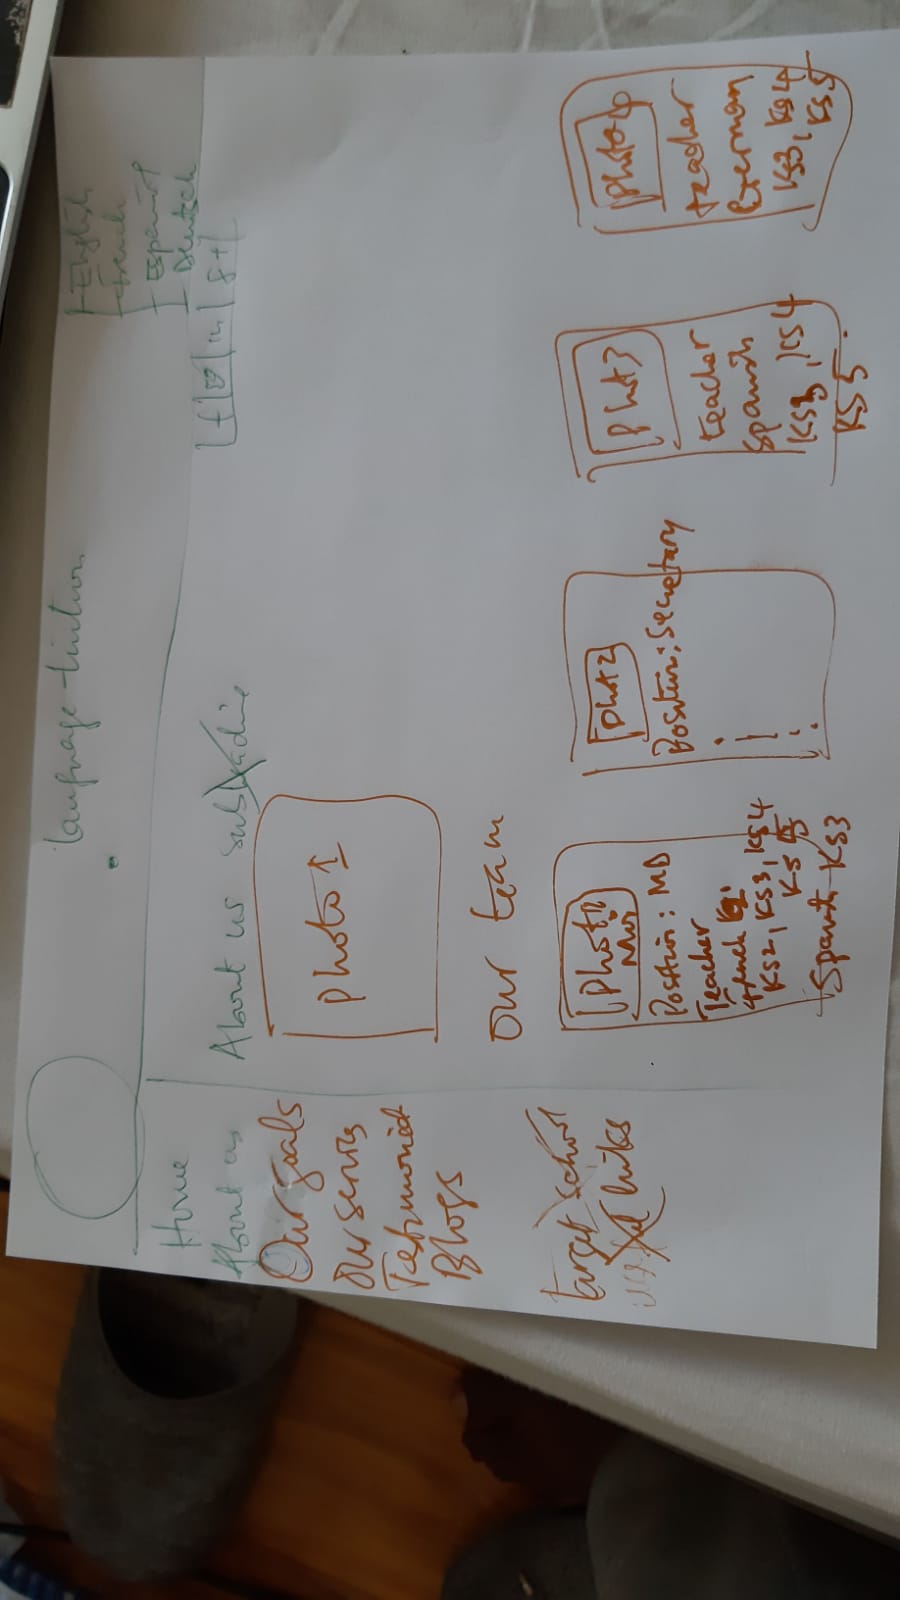 Language tuition
English
French
Español
Deutsch
f in g+
Home
About us
Our goals
Our services
Testimonials
Blogs
target school
useful links
About us
Photo 1
Our team
Photo
Moi
Position: MD
Teacher
French
KS2, KS3, KS4
KS5
Spanish KS3
Phot 2
Position: Secretary
Phot 3
teacher
Spanish
KS3, KS4
KS5
Photo 4
teacher
German
KS3, KS4
KS5